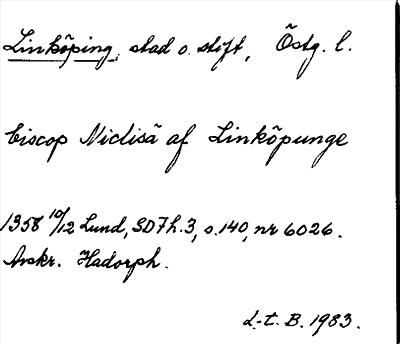 Linköping, stad o. stift, Östg. l.
biscop Niclisā af Linköpunge
1358 10/12 Lund, SD7h.3, s.140, nr 6026.
Avskr. Hadorph.
L.-t. B. 1983.